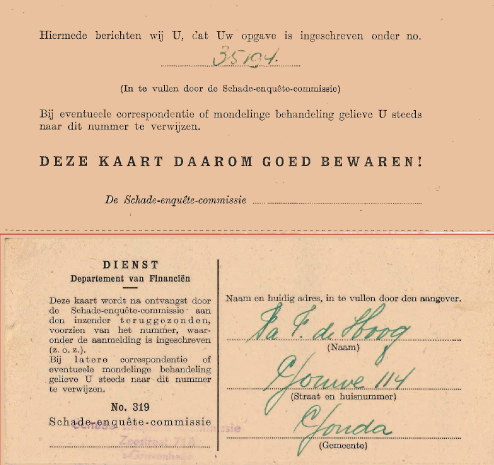 Hiermede berichten wij U, dat Uw opgave is ingeschreven onder no.
35194.
(In te vullen door de Schade-enquête-commissie)
Bij eventueele correspondentie of mondelinge behandeling gelieve U steeds
naar dit nummer te verwijzen.
DEZE KAART DAAROM GOED BEWAREN!
De Schade-enquête-commissie
DIENST
Departement van Financiën
Deze kaart wordt na ontvangst door
de Schade-enquête-commissie aan
den inzender teruggezonden,
voorzien van het nummer, waar-
onder de aanmelding is ingeschreven
(z. o. z.).
Bij latere correspondentie of
eventueele mondelinge behandeling
gelieve U steeds naar dit nummer
te verwijzen.
No. 319
Schade-enquête-commissie
Naam en huidig adres, in te vullen door den aangever.
Fa F. de Hoog
(Naam)
Gouwe 114
(Straat en huisnummer)
Gouda
(Gemeente)